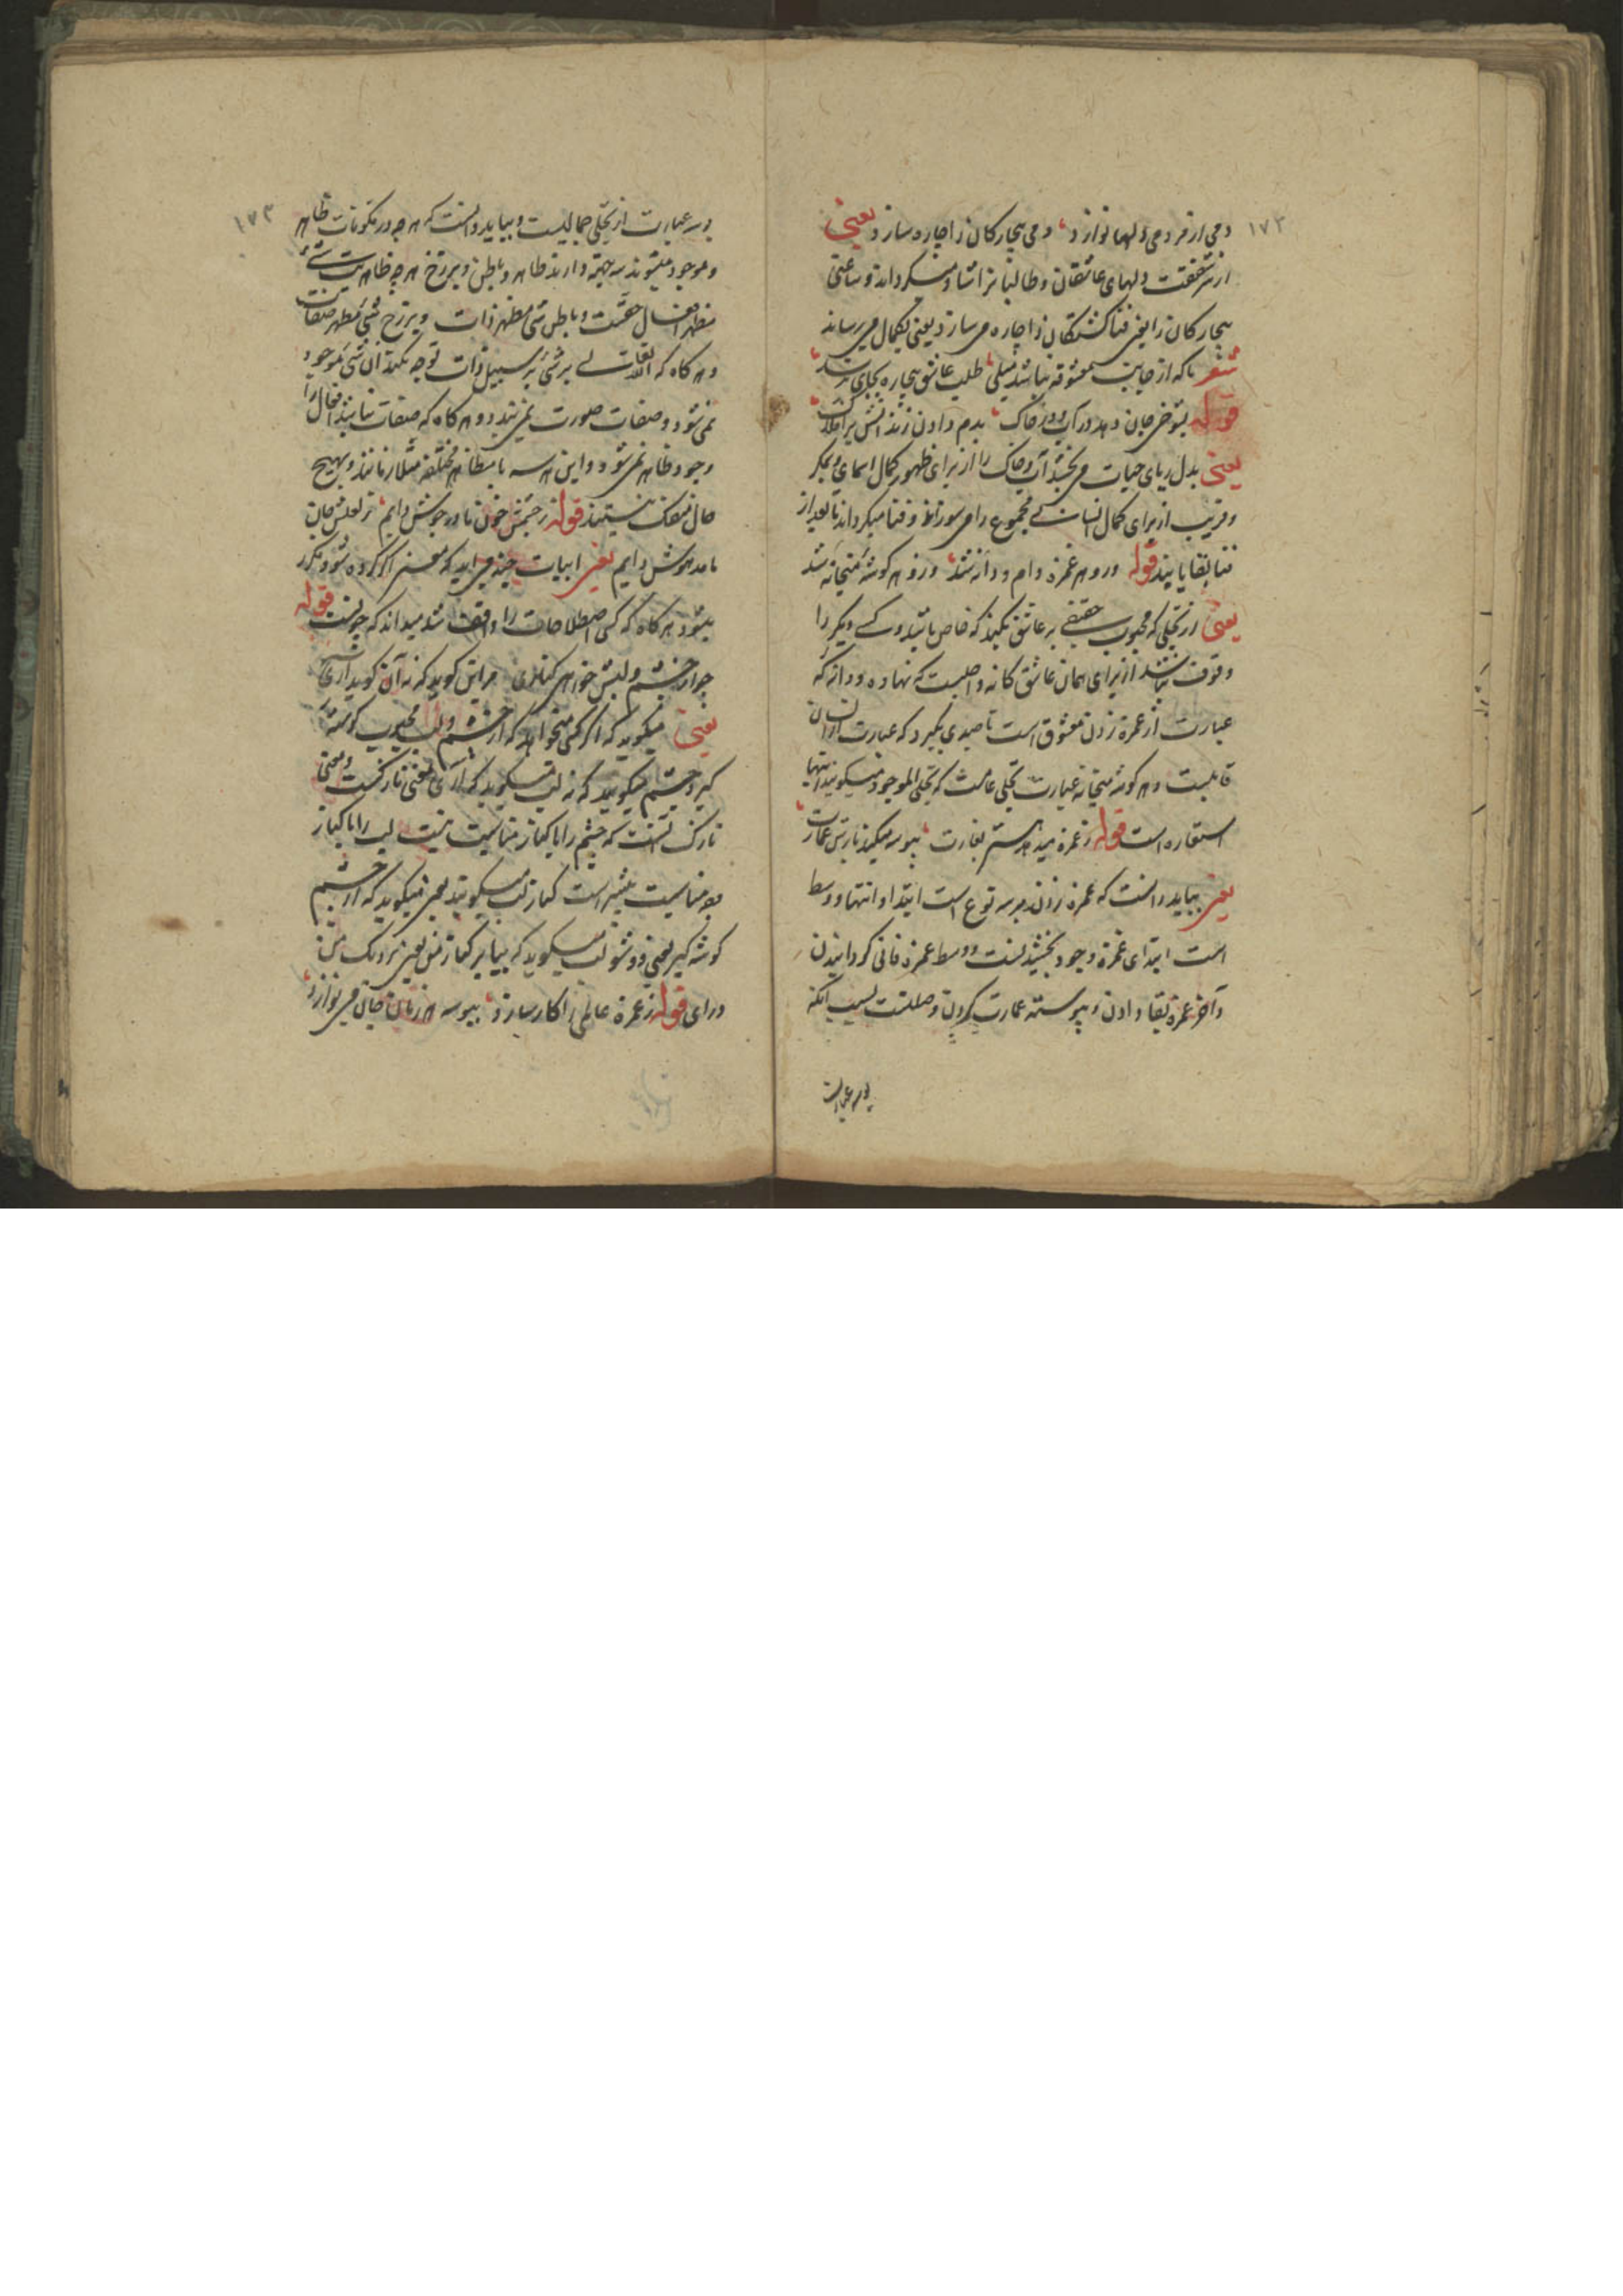 ۱۷۲
دمی از مردمی دلها نوازد دمی بیچارگان را چاره سازد یعنی
از شفقت دلهای عاشقان و طالبانرا شاد میگرداند و ساعتی
بیچارگان را یعنی فنا گشتگان را چاره می سازد یعنی بکمال می رساند
شعر تا که از جانب معشوقه نباشد میلی طلب عاشق بیچاره بجای نرسد
قوله بشوخی جان دهد در آب و در خاک بدم دادن زند آتش بر افلاک
یعنی بدل ربای حیات می بخشد آب و خاک را از برای ظهور کمال اسمای و بمکر
و فریب از برای کمال انسانی مجموع را می سوزاند و فنا میگرداند تا بعد از
فنا بقا یابند قوله درو هر غمزه دام و دانه شد وزو هر گوشه میخانه شد
یعنی از تجلی که محبوب حقیقی بر عاشق بکند که خاص باشد و کسی دیگر را
وقوف نباشد از برای همان عاشق کانه و اصلیست که نهاده و دانه که
عبارت از غمزه زدن معشوق است تا صیدی بگیرد که عبارت از انسان
قابلست و هر گوشه میخانه عبارت تجلی عامست که تجلی الموجود میگویند اینها
استعاره است قوله ز غمزه میدهد هستی بغارت ببوسه میکند بازش عمارت
یعنی بباید دانست که غمزه زدن بر سه نوع است ابتدا و انتها و وسط
است ابتدای غمزه وجود بخشیدنست و وسط غمزه فانی گردانیدن
و آخر غمزه بقا دادن و پیوسته عمارت کردن وصلتست بسبب آنکه
بوسه عبارت
۱۷۳
بوسه عبارت از تجلی جمالیست و بباید دانست که هر چه در مکونات ظاهر
و موجود میشوند سه جهة دارند ظاهر و باطن و برزخ هر چه ظاهریت شئ
مظهر افعال حقست و باطن شی مظهر ذات و برزخ شی مظهر صفات
و هر گاه که التفات بی بر شی بر سبیل ذات توجه نکند آن شی موجود
نمی شود و صفات صورت نمی بندد و هر گاه که صفات نباشد افعال را
وجود ظاهر نمی شود و این هر سه با مظاهر مختلفه متلازمانند و بهیچ
حال منفک نیستند قوله ز چشمش خون ما در جوش دایم ز لعلش جان
ما مدهوش دایم یعنی ابیات چند می آید که معنی اگر کرده شود مکرر
میشود هر گاه که کسی اصطلاحات را واقف شد میداند که چونست قوله
چو از چشم و لبش خواهی کناری مر این گوید که نه آن گوید آری
یعنی میگوید که اگر کسی میخواهد که از چشم و لب محبوب گوشه
گیرد چشم میگوید که نه لب میگوید که آری یعنی نازکست و معنی
نازک آنست که چشم را با کنار مناسبت نیست لب را با کنار
مناسبت بیشتر است کنار لب میگویند یعنی میگوید که از چشم
گوشه گیر یعنی دور شو لب میگوید که بیا بر کنار من یعنی نزدیک من
در آی قوله ز غمزه عالمی را کار سازد ببوسه هر زمان جان می نوازد